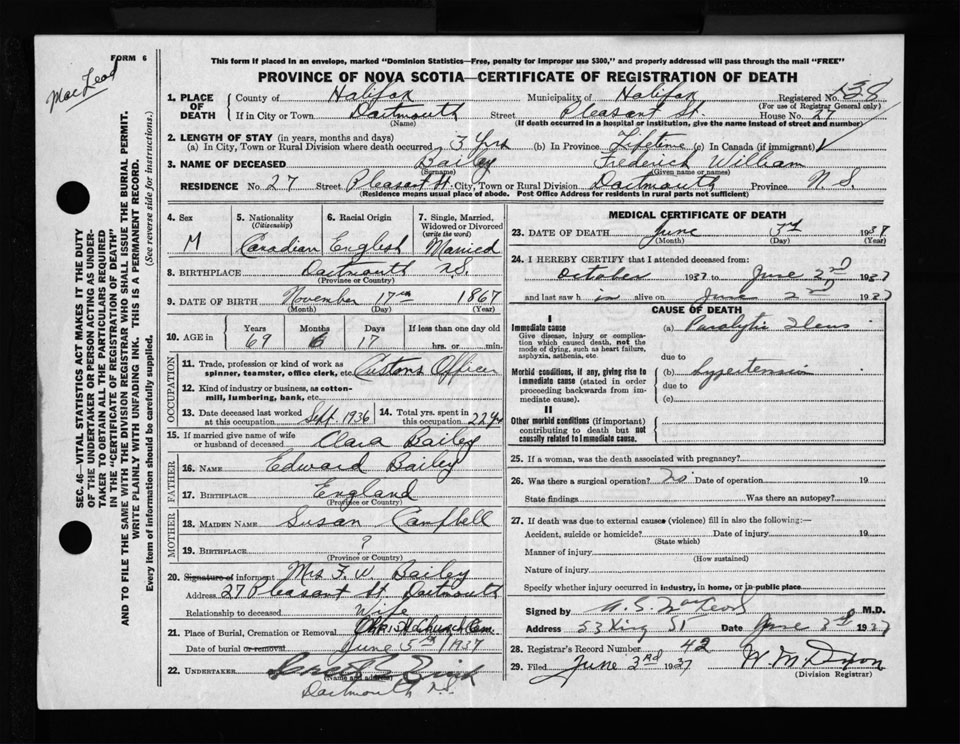 FORM 6
MacLeod
This form if placed in an envelope, marked "Dominion Statistics—Free, penalty for improper use $300," and properly addressed will pass through the mail "FREE"
PROVINCE OF NOVA SCOTIA—CERTIFICATE OF REGISTRATION OF DEATH
1. PLACE OF DEATH County of Halifax Municipality of Halifax Registered No. 138
(For use of Registrar General only)
If in City or Town Dartmouth Street Pleasant St. House No. 27
(Name) (If death occurred in a hospital or institution, give the name instead of street and number)
2. LENGTH OF STAY (in years, months and days)
(a) In City, Town or Rural Division where death occurred 3 Yrs (b) In Province Lifetime (c) In Canada (if immigrant)
3. NAME OF DECEASED Bailey Frederick William
(Surname) (Given name or names)
RESIDENCE No. 27 Street Pleasant St. City, Town or Rural Division Dartmouth Province N. S.
(Residence means usual place of abode. Post Office Address for residents in rural parts not sufficient)
4. Sex M
5. Nationality (Citizenship) Canadian
6. Racial Origin English
7. Single, Married, Widowed or Divorced (write the word) Married
8. BIRTHPLACE Dartmouth N.S.
(Province or Country)
9. DATE OF BIRTH November 17th 1867
(Month) (Day) (Year)
10. AGE in Years 69 Months 6 Days 17 If less than one day old hrs. or min.
OCCUPATION
11. Trade, profession or kind of work as spinner, teamster, office clerk, etc. Customs Officer
12. Kind of industry or business, as cotton-mill, lumbering, bank, etc.
13. Date deceased last worked at this occupation Sept. 1936 14. Total yrs. spent in this occupation 22 yrs
15. If married give name of wife or husband of deceased Clara Bailey
FATHER
16. NAME Edward Bailey
17. BIRTHPLACE England
(Province or Country)
MOTHER
18. MAIDEN NAME Susan Campbell
19. BIRTHPLACE ?
(Province or Country)
20. Signature of informant Mrs F. W. Bailey
Address 27 Pleasant St. Dartmouth
Relationship to deceased Wife
21. Place of Burial, Cremation or Removal Christ Church Cem.
Date of burial or removal June 5th 1937
22. UNDERTAKER
(Name and address)
Dartmouth N.S.
MEDICAL CERTIFICATE OF DEATH
23. DATE OF DEATH June 3rd 1937
(Month) (Day) (Year)
24. I HEREBY CERTIFY that I attended deceased from:
October 1937 to June 2nd 1937
and last saw h im alive on June 2nd 1937
CAUSE OF DEATH
I
Immediate cause
Give disease, injury or complication which caused death, not the mode of dying, such as heart failure, asphyxia, asthenia, etc.
(a) Paralytic Ileus
due to
Morbid conditions, if any, giving rise to immediate cause (stated in order proceeding backwards from immediate cause).
(b) Hypertension
due to
(c)
II
Other morbid conditions (if important) contributing to death but not causally related to immediate cause.
25. If a woman, was the death associated with pregnancy?
26. Was there a surgical operation? No Date of operation 19
State findings Was there an autopsy?
27. If death was due to external causes (violence) fill in also the following:—
Accident, suicide or homicide? Date of injury 19
(State which)
Manner of injury
(How sustained)
Nature of injury
Specify whether injury occurred in industry, in home, or in public place
Signed by A. S. MacLeod M.D.
Address 53 King St Date June 3rd 1937
28. Registrar's Record Number 42
29. Filed June 3rd 1937 W. M. Dixon
(Division Registrar)
SEC. 46—VITAL STATISTICS ACT MAKES IT THE DUTY
OF THE UNDERTAKER OR PERSON ACTING AS UNDER-
TAKER TO OBTAIN ALL THE PARTICULARS REQUIRED
IN THE "CERTIFICATE OF REGISTRATION OF DEATH"
AND TO FILE THE SAME WITH THE DIVISION REGISTRAR WHO SHALL ISSUE THE BURIAL PERMIT.
WRITE PLAINLY WITH UNFADING INK. THIS IS A PERMANENT RECORD.
Every item of information should be carefully supplied. (See reverse side for instructions.)